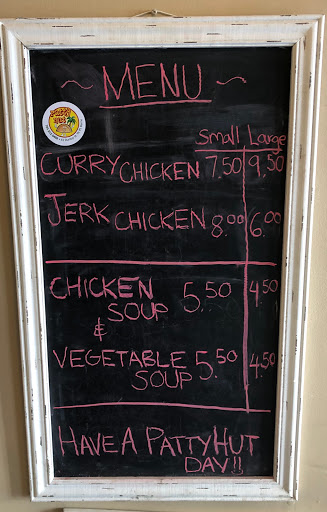 ~ MENU ~
Small Large
CURRY CHICKEN 7.50 9.50
JERK CHICKEN 8.00 6.00
CHICKEN SOUP 5.50 4.50
&
VEGETABLE SOUP 5.50 4.50
HAVE A PATTY HUT
DAY!!